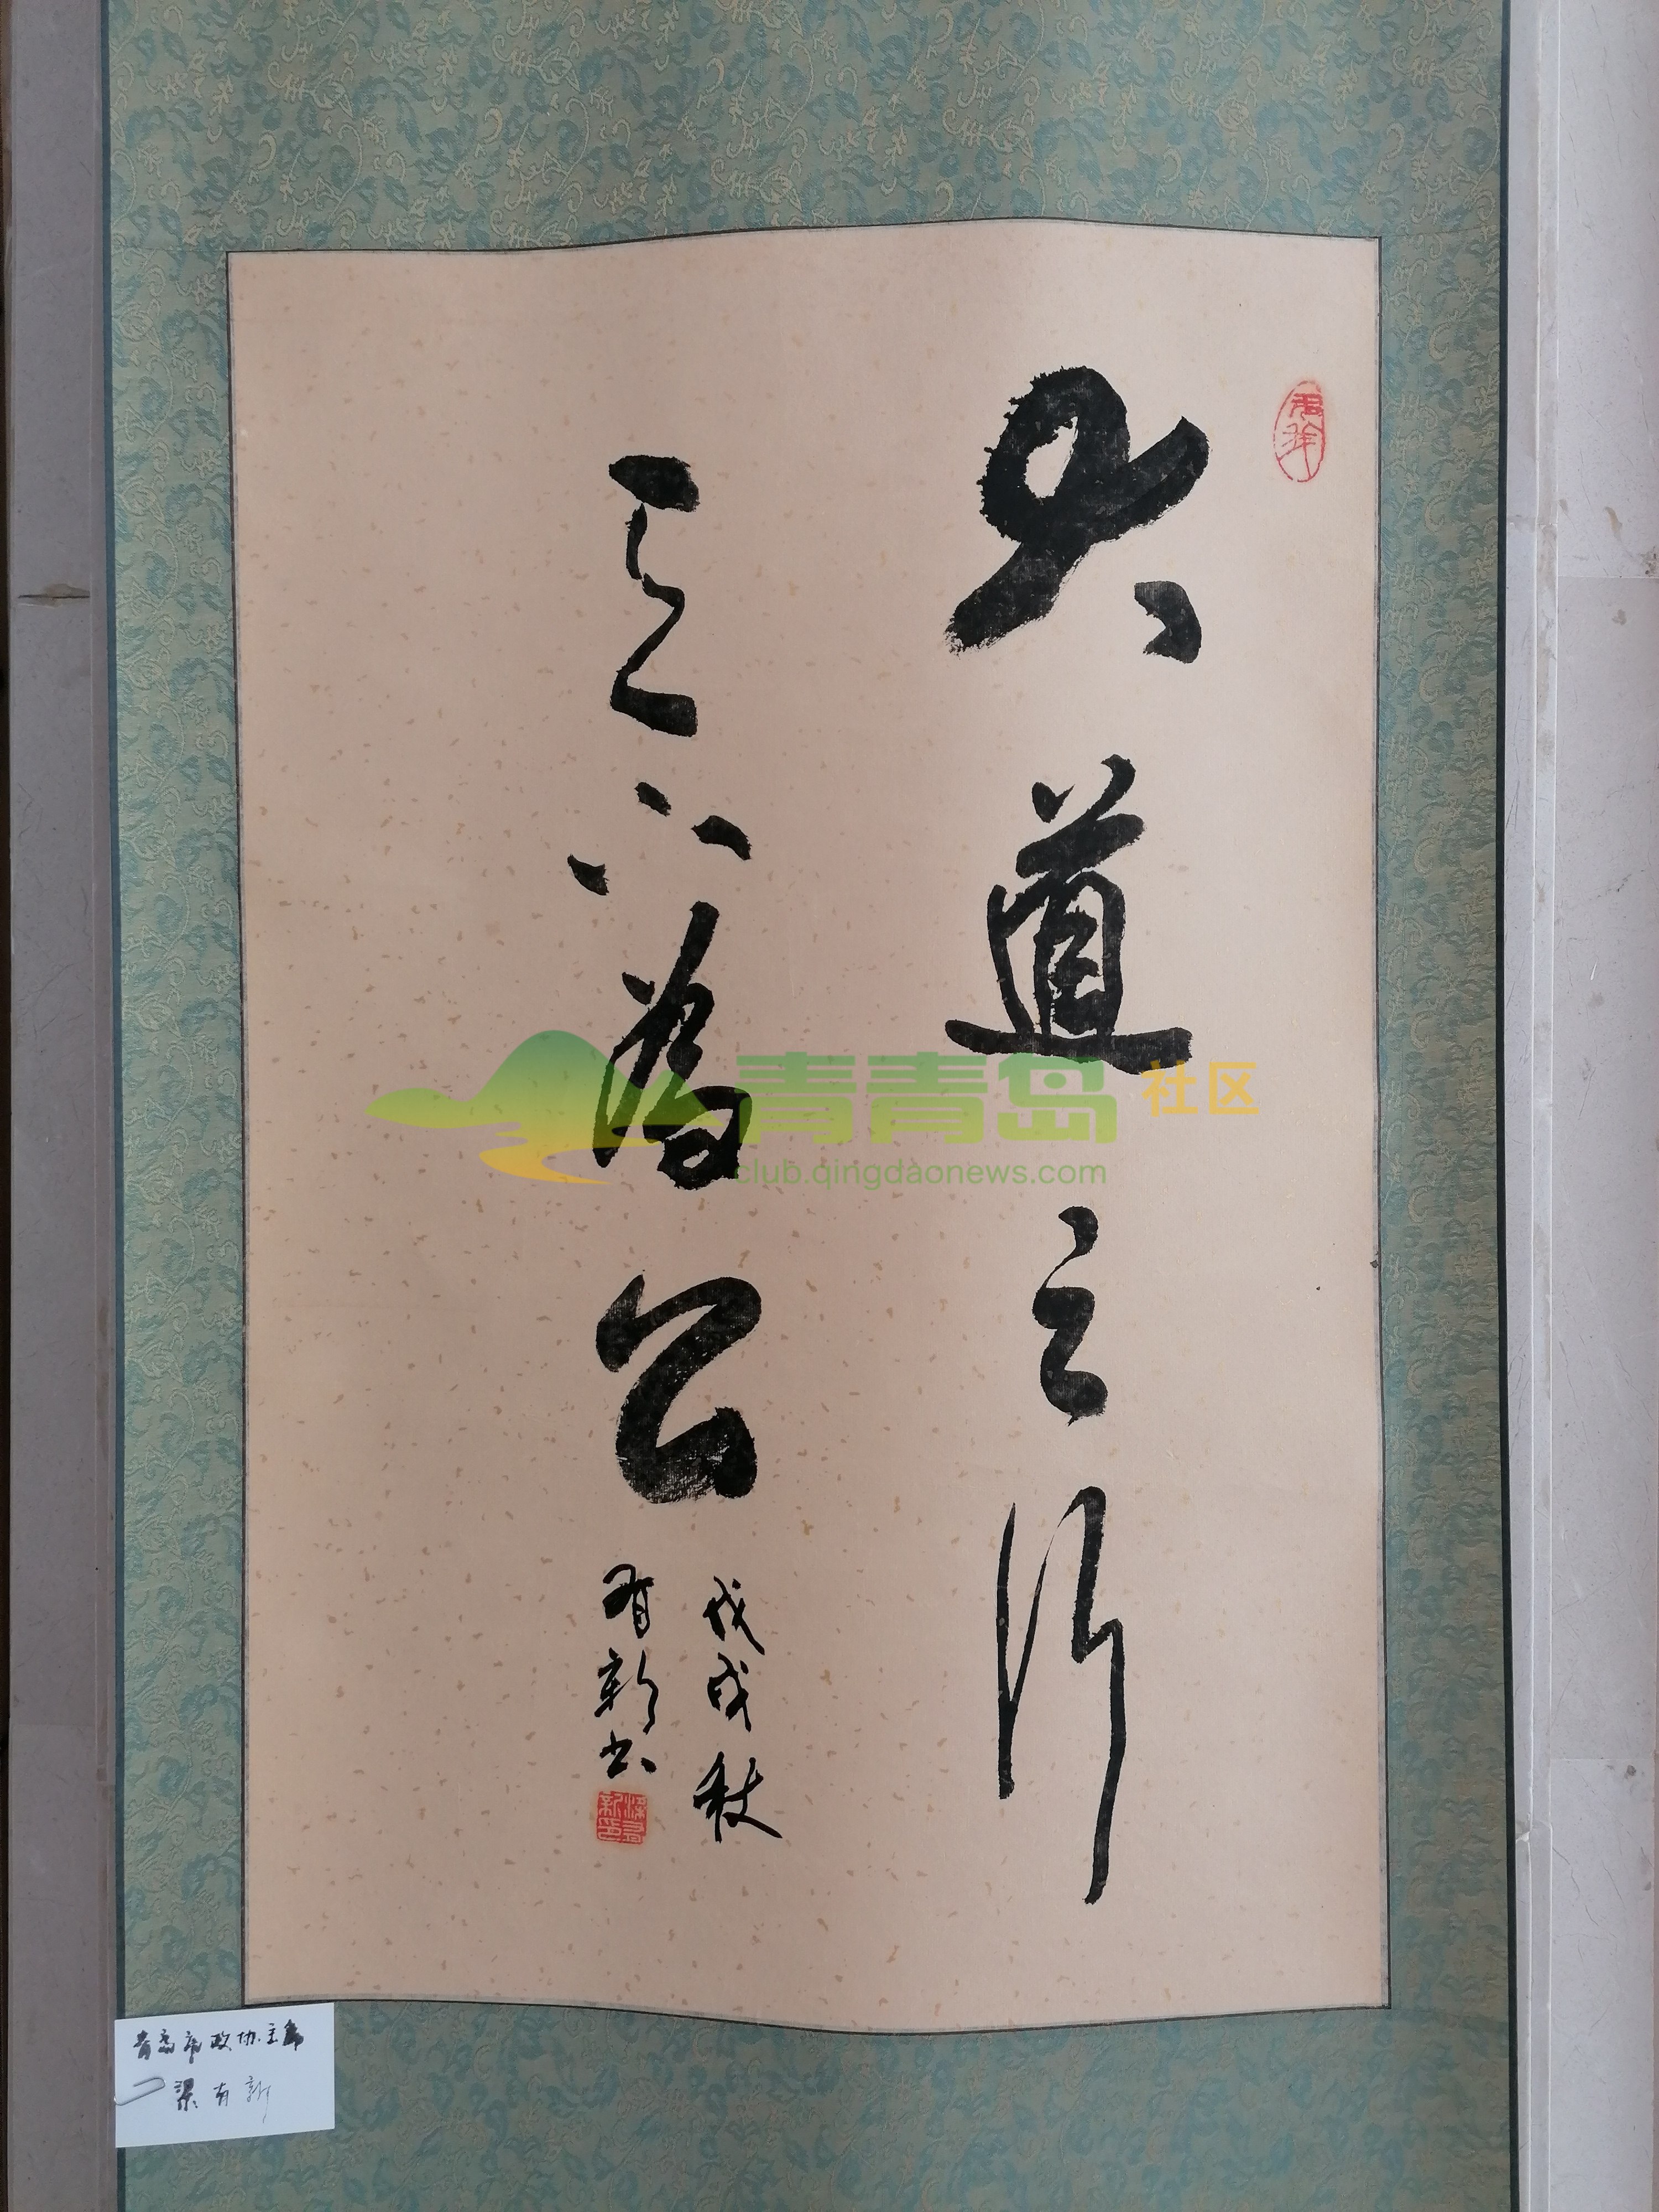 大道之行
天下為公
戊戌秋
有新书
梁有新印
青青岛 社区
club.qingdaonews.com
青岛市政协主席
梁有新